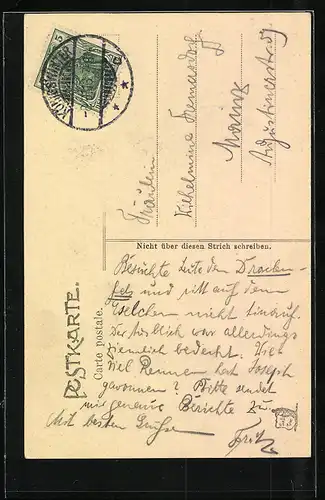 5
KÖNIGSWINTER
Fräulein
Wilhelmine
Mainz
Augustinerstraße
Nicht über diesen Strich schreiben.
POSTKARTE.
Carte postale.
Besuchte heute den Drachen-
fels und ritt auf dem
Eselchen nicht hinauf.
Der Ausblick war allerdings
ziemlich bedeckt. Hier
viel Rennen hat Joseph
gewonnen? Bitte sendet
mir genaue Berichte zu.
Mit besten Grüßen
Fritz